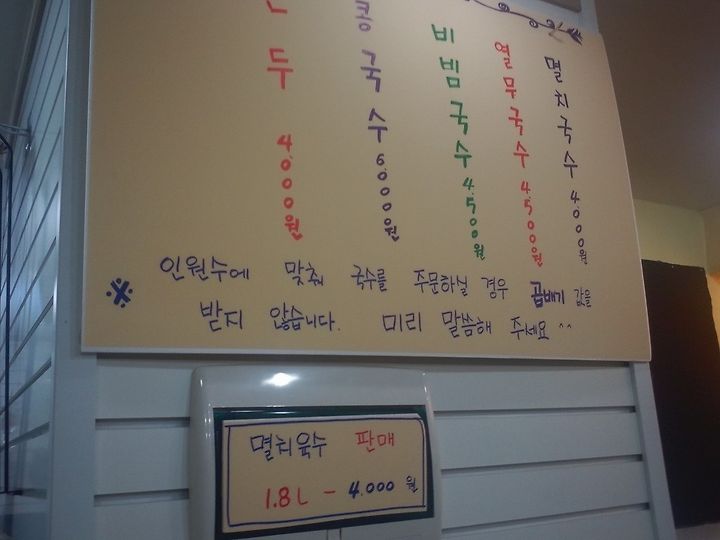 멸치국수 4.000원
열무국수 4.500원
비빔국수 4.500원
콩국수 6.000원
두 4.000원
※ 인원수에 맞춰 국수를 주문하실 경우 곱배기 값을
받지 않습니다. 미리 말씀해 주세요 ^^
멸치육수 판매
1.8L - 4.000원